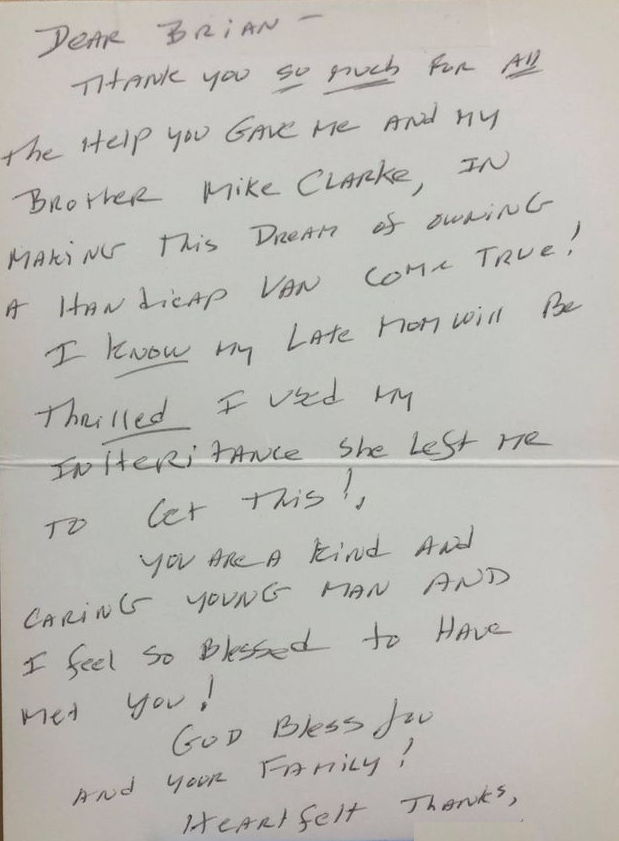 DEAR BRIAN -
THANK you so much for All
the Help you GAVE ME AND MY
BROTHER MIKE CLARKE, IN
MAKING This DREAM of OWNING
A HANdicAP VAN COME TRUE!
I KNOW my LATE MOM will Be
Thrilled I used MY
INHERITANCE she Left ME
TO Get THIS!
YOU ARE A Kind AND
CARING YOUNG MAN AND
I feel so Blessed to HAVE
Met you!
GOD Bless you
AND YOUR FAMILY!
HEARTfelt THANKS,